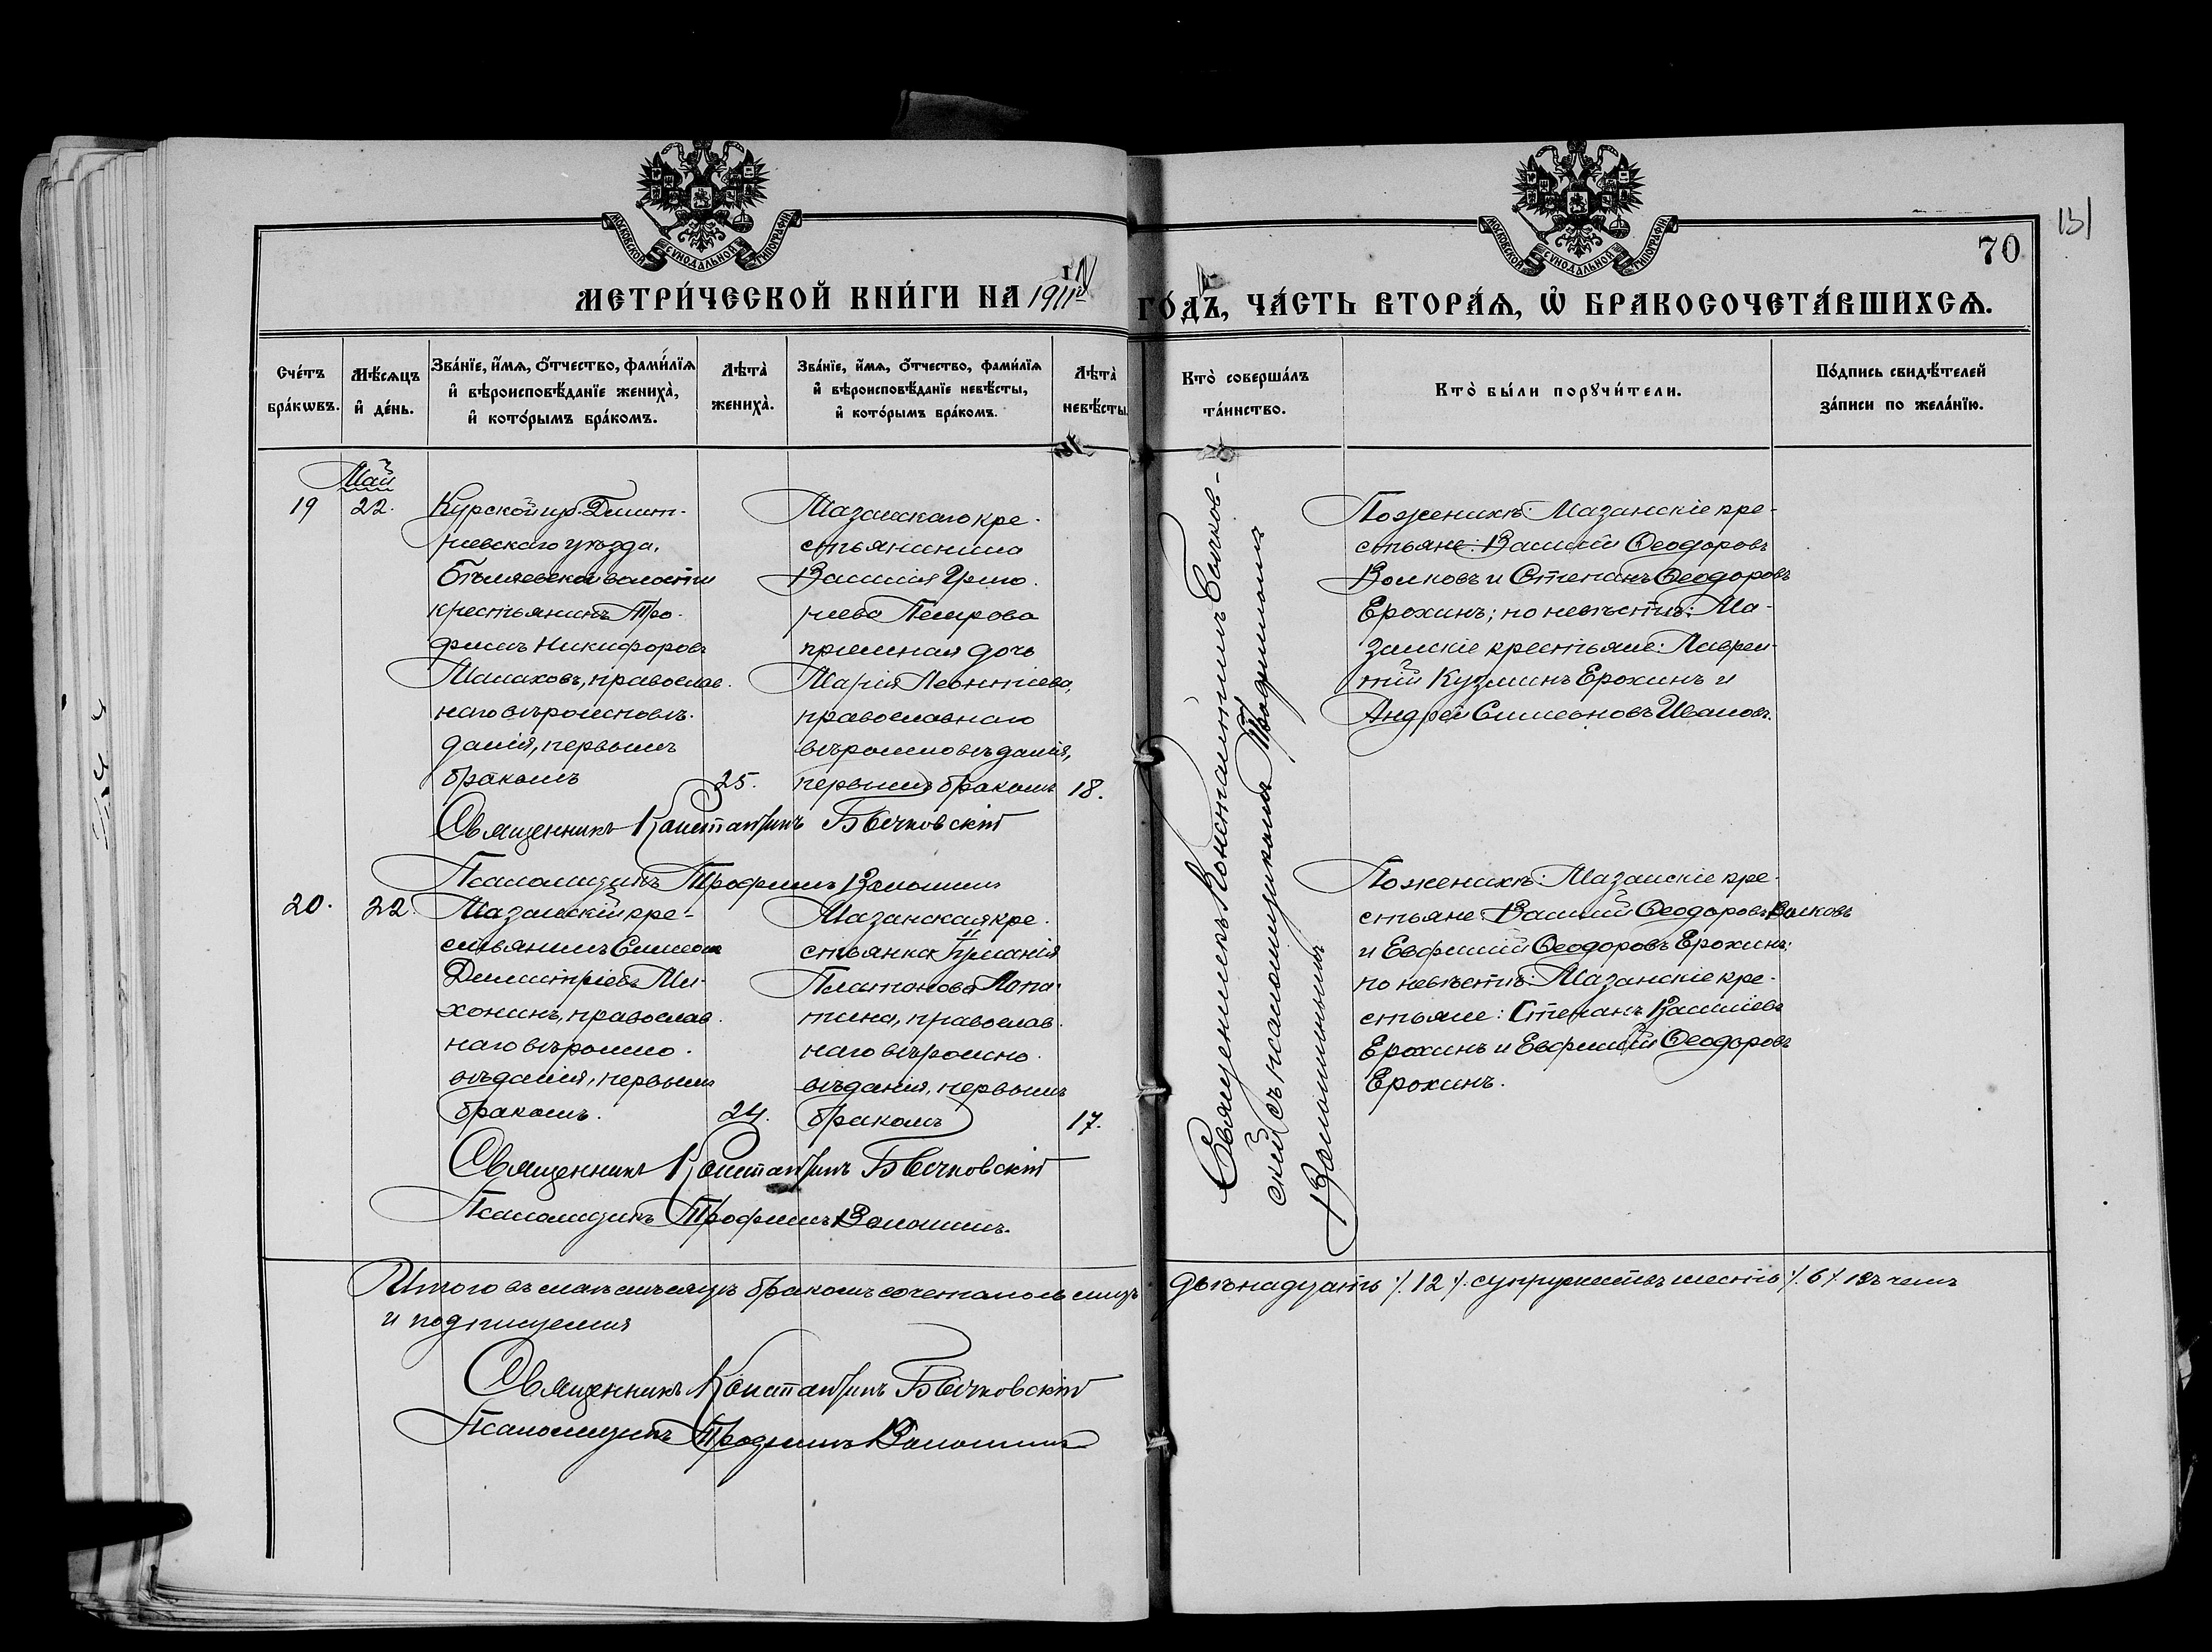 МОСКОВСКОЙ СУНОДАЛЬНОЙ ТИПОГРАФІИ
МОСКОВСКОЙ СУНОДАЛЬНОЙ ТИПОГРАФІИ
131
70
МЕТРИ́ЧЕСКОЙ КНИ́ГИ НА 1911й ГО́ДЪ, ЧА́СТЬ ВТОРА́Ѧ, Ѡ҆ БРАКОСОЧЕТА́ВШИХСѦ.
Сче́тъ бра́кѡвъ.
Мѣ́сѧцъ и҆ де́нь.
Зва́нїе, и҆́мѧ, ѻ҆́тчество, фами́лїѧ
и҆ вѣроисповѣ́данїе жениха̀,
и҆ кото́рымъ бра́комъ.
Лѣта̀ жениха̀.
Зва́нїе, и҆́мѧ, ѻ҆́тчество, фами́лїѧ
и҆ вѣроисповѣ́данїе невѣ́сты,
и҆ кото́рымъ бра́комъ.
Лѣта̀ невѣ́сты.
Кто̀ соверша́лъ
та́инство.
Кто̀ бы́ли порꙋчи́тели.
По́дпись свидѣ́телей
за́писи по жела́нїю.
Май
19
22.
Курской губ. Дмит-
ріевскаго уѣзда,
волости
крестьянинъ Тро-
фимъ Никифоровъ
Малаховъ, православ-
наго вѣроисповѣ-
данія, первымъ
бракомъ
25.
Мазанскаго кре-
стьянина
Василія
Петрова
пріемная дочь
Марія Леонтіева,
православнаго
вѣроисповѣданія,
первымъ бракомъ
18.
Священникъ Константинъ Бычковскій
Псаломщикъ Трофимъ Волошинъ
Священникъ Константинъ Бычков-
скій съ псаломщикомъ Трофимомъ
Волошинымъ
По женихѣ: Мазанскіе кре-
стьяне: Василій Ѳеодоровъ
Волковъ и Стефанъ Ѳеодоровъ
Ерохинъ; по невѣстѣ: Ма-
занскіе крестьяне: Лаврен-
тій Кузминъ Ерохинъ и
Андрей Симеоновъ Ивановъ.
20.
22.
Мазанскій кре-
стьянинъ Симеонъ
Димитріевъ Ми-
хонинъ, православ-
наго вѣроиспо-
вѣданія, первымъ
бракомъ.
24.
Мазанская кре-
стьянка Іуліанія
Платонова Лопа-
тина, православ-
наго вѣроиспо-
вѣданія, первымъ
бракомъ
17.
По женихѣ: Мазанскіе кре-
стьяне: Василій Ѳеодоровъ Волковъ
и Евфимій Ѳеодоровъ Ерохинъ;
по невѣстѣ: Мазанскіе кре-
стьяне: Стефанъ Василіевъ
Ерохинъ и Евфимій Ѳеодоровъ
Ерохинъ.
Священникъ Константинъ Бычковскій
Псаломщикъ Трофимъ Волошинъ.
Итого въ маѣ мѣсяцѣ бракомъ сочетались лицъ двѣнадцать /. 12 /. супружествъ шесть /. 6 /. въ чемъ
и подпишемся
Священникъ Константинъ Бычковскій
Псаломщикъ Трофимъ Волошинъ